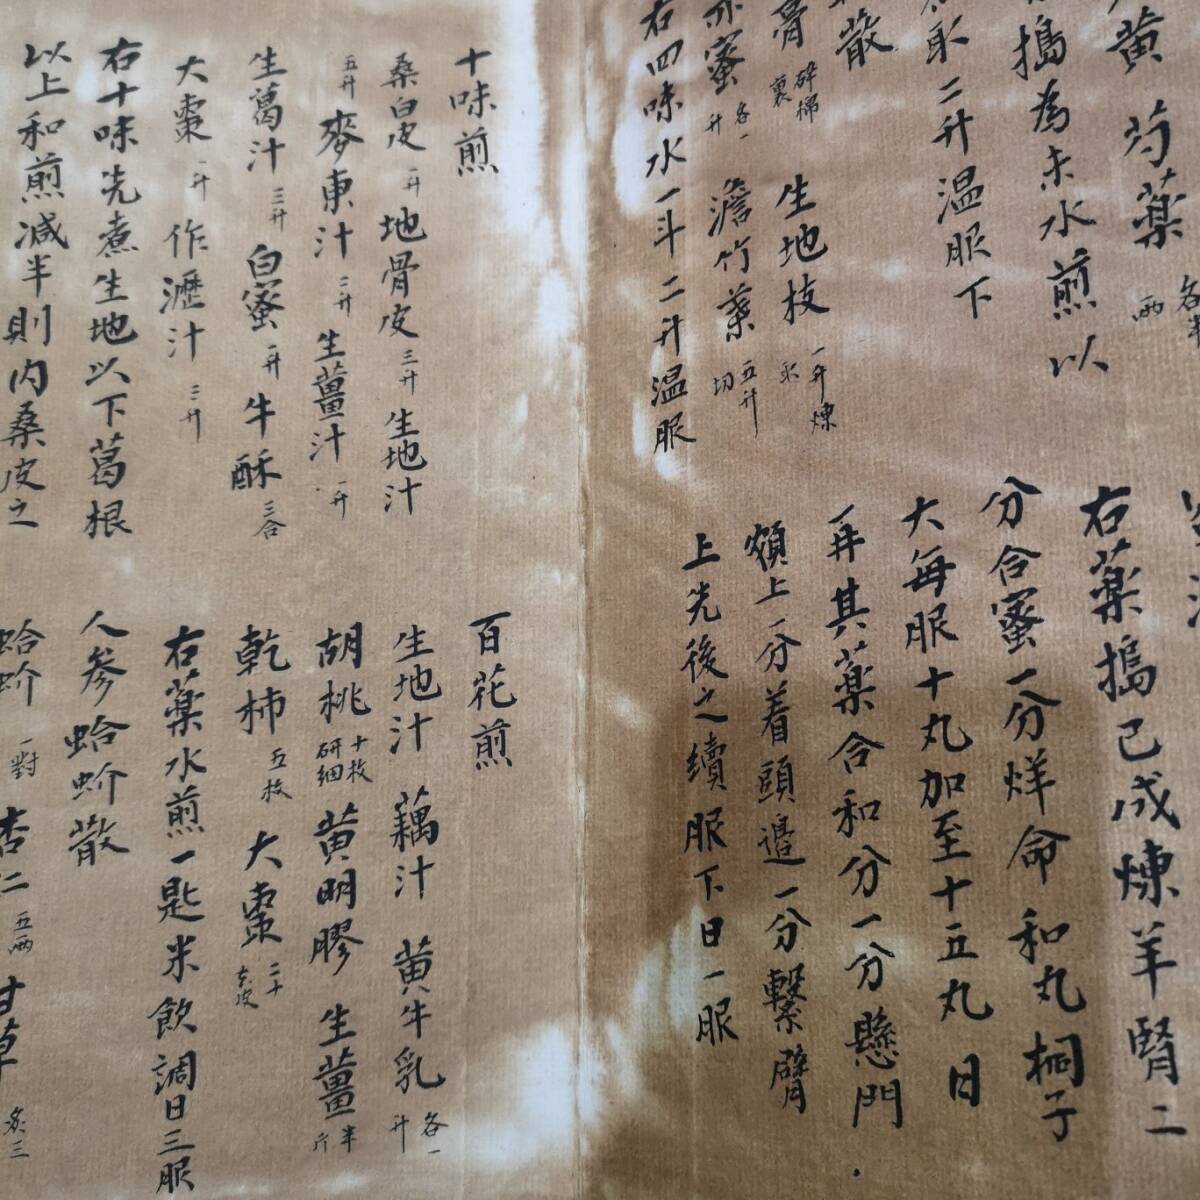 黄 芍薬 各半两
搗為末水煎以
取二升温服下
散
膏 碎綿裏 生地枝 一升煉
赤蜜 各一升 澹竹葉 五升切
右四味水一斗二升温服
右薬搗已成煉羊腎二
分合蜜一分烊命和丸桐子
大每服十丸加至十五丸日
一并其薬合和分一分懸門
額上一分着頭邉一分繫臂
上先後之續服下日一服
十味煎
桑白皮 一升 地骨皮 三升 生地汁
五升 麥東汁 二升 生薑汁 一升
生葛汁 三升 白蜜 一升 牛酥 三合
大棗 一升 作瀝汁 三升
右十味先煮生地以下葛根
以上和煎減半則内桑皮之
百花煎
生地汁 藕汁 黄牛乳 各一升
胡桃 十枚研細 黄明膠 生薑 半斤
乾柿 五枚 大棗 二十去皮
右薬水煎一匙米飲調日三服
人参蛤蚧散
蛤蚧 一對 杏仁 五兩 甘草 炙三